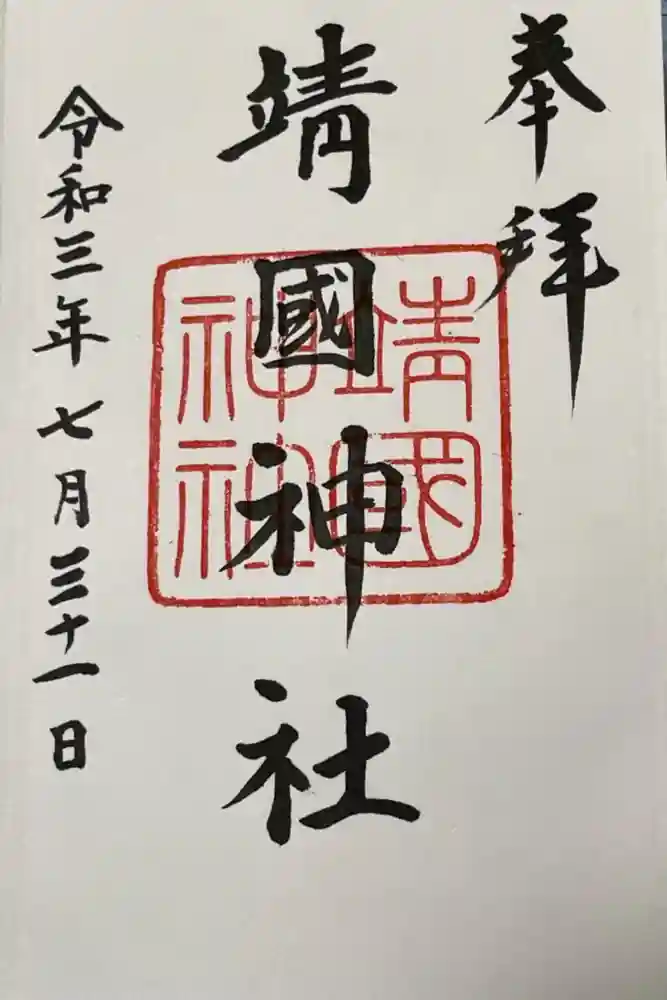 奉拝
靖國神社
靖國神社
令和三年七月三十一日